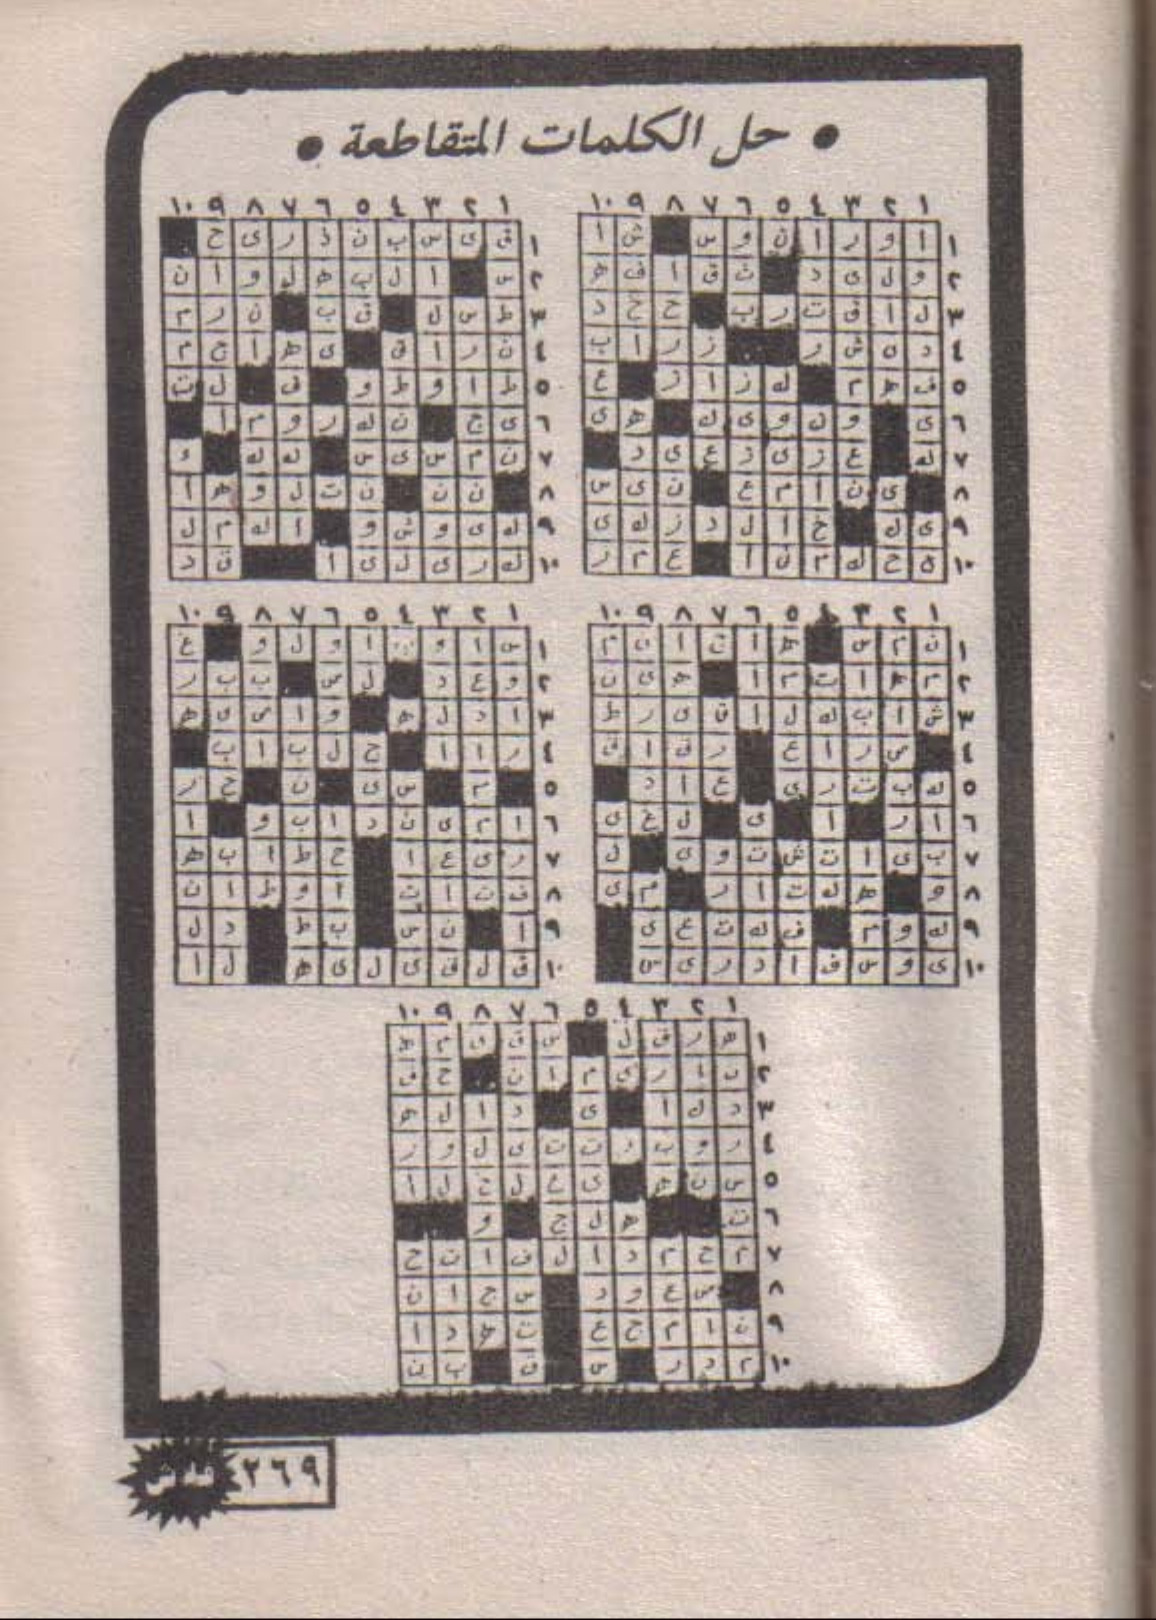 • حل الكلمات المتقاطعة •
١ ٢ ٣ ٤ ٥ ٦ ٧ ٨ ٩ ١٠
١ ا و ر ا ن و س ش ا
٢ و ل ى د ث ق ا ف ه
٣ ل ا ف ت ر ب ح خ د
٤ د ى ش ر ز ر ا ب
٥ ف ه م ك ز ا ز ع
٦ ى و ل و ى ك ه ى
٧ ك ع ز ى ز ع ى د
٨ ى ن ا م ع ن ى س
٩ ى ك خ ا ل د ز ك ى
١٠ ه ح ك م ن ا ع م ر
١ ٢ ٣ ٤ ٥ ٦ ٧ ٨ ٩ ١٠
١ ف ى س ب ن د ر ى ح
٢ س ا ل ب ه ل و ا ن
٣ ط س ل ق ب ن ر م
٤ ن ر ا ق ى ه ا ج م
٥ ط ا و ط و ف ل ت
٦ ى ج ن ك ر و م ا
٧ ن م س ى س ك ك ء
٨ ن ن ن ت ل و ه ا
٩ ك ى و ش و ا ك م ل
١٠ ك ر ى ل ى ا ق د
١ ٢ ٣ ٤ ٥ ٦ ٧ ٨ ٩ ١٠
١ ن م س ه ا ن ا ن م
٢ م ه ا ت م ا ه ى ن
٣ ش ا ب ك ل ا ق ى ر ط
٤ س ر ا ع ر ف ا ق
٥ ك ب ت ر ى ع ا د
٦ ا ر ا ى ل غ ى
٧ ب ى ا ت ش ت و ى ل
٨ و ه ك ت ا ر م ى
٩ ك و م ف ك ت ع ى
١٠ ى و س ف ا د ر ى س
١ ٢ ٣ ٤ ٥ ٦ ٧ ٨ ٩ ١٠
١ س ا و ب ا و ل و غ
٢ و ع د ل س ب ب ر
٣ ا د ل ه و ا س ى ه
٤ ر ا ا ج ل ب ا ب
٥ م س ى ن ح ر
٦ ا م ى ن د ا ب و ا
٧ ر ى ع ا ح ط ا ب ه
٨ ف ن ا ن ا و ط ا ن
٩ ا ن س ب ط د ل
١٠ ق ل ق ى ل ى ه ل ا
١ ٢ ٣ ٤ ٥ ٦ ٧ ٨ ٩ ١٠
١ ه ر ق ل س ق ى م ه
٢ ن ا ر ى م ا ن ح ف
٣ د ك ا ى د ا ل ه
٤ ر و ب ر ت ت ى ل و ز
٥ س ن ه ى ع ل ع ل ا
٦ ت ه ل ج و
٧ م ح م د ا ل ف ا ت ح
٨ س ع و د س ج ا ن
٩ ن ا م ج ع ت ه د ا
١٠ م د ر س ق ب ن
٢٦٩